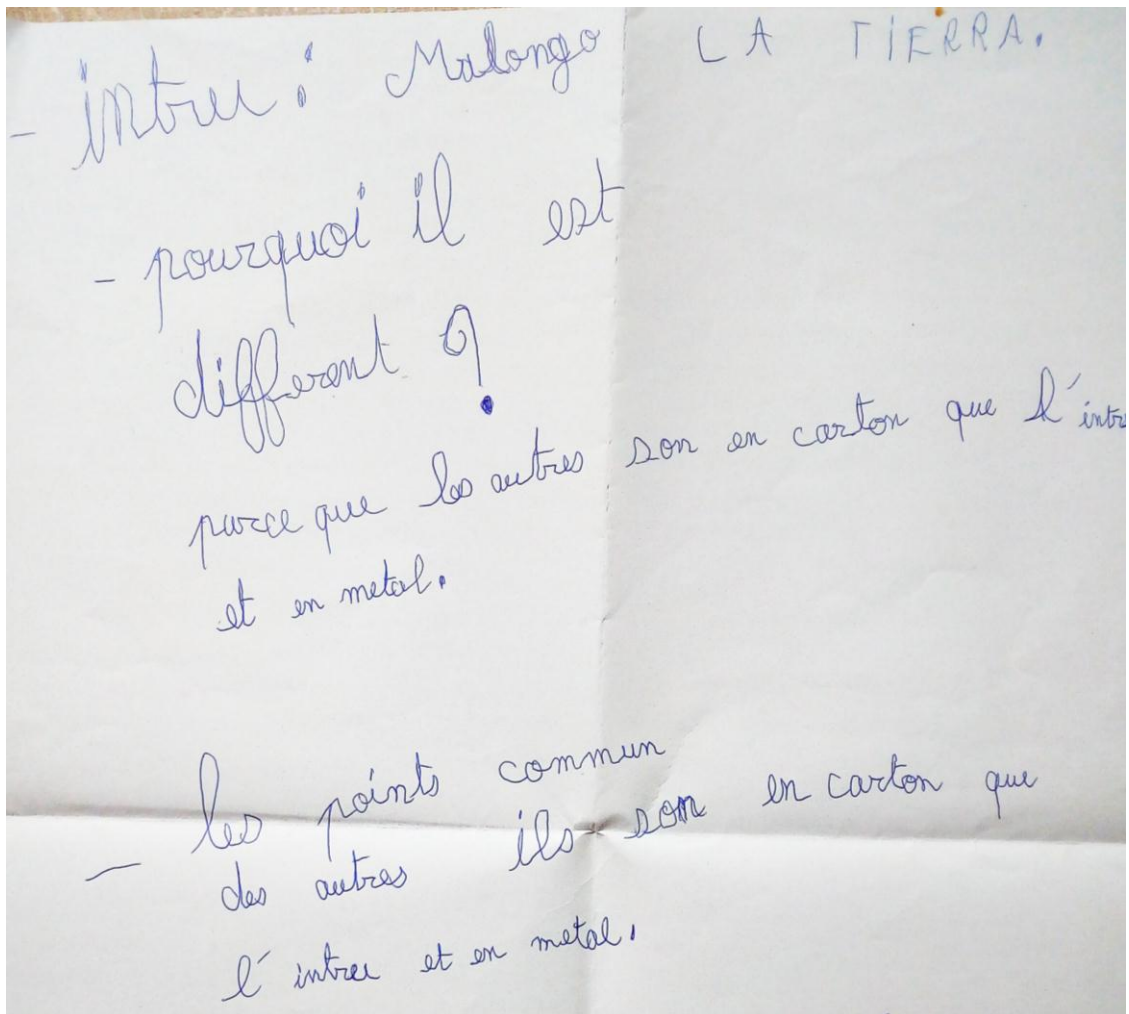 - intru : Malongo LA TIERRA.
- pourquoi il est
différent ?
parce que les autres son en carton que l'intru
et en metal.
- les points commun
des autres ils son en carton que
l'intru et en metal.